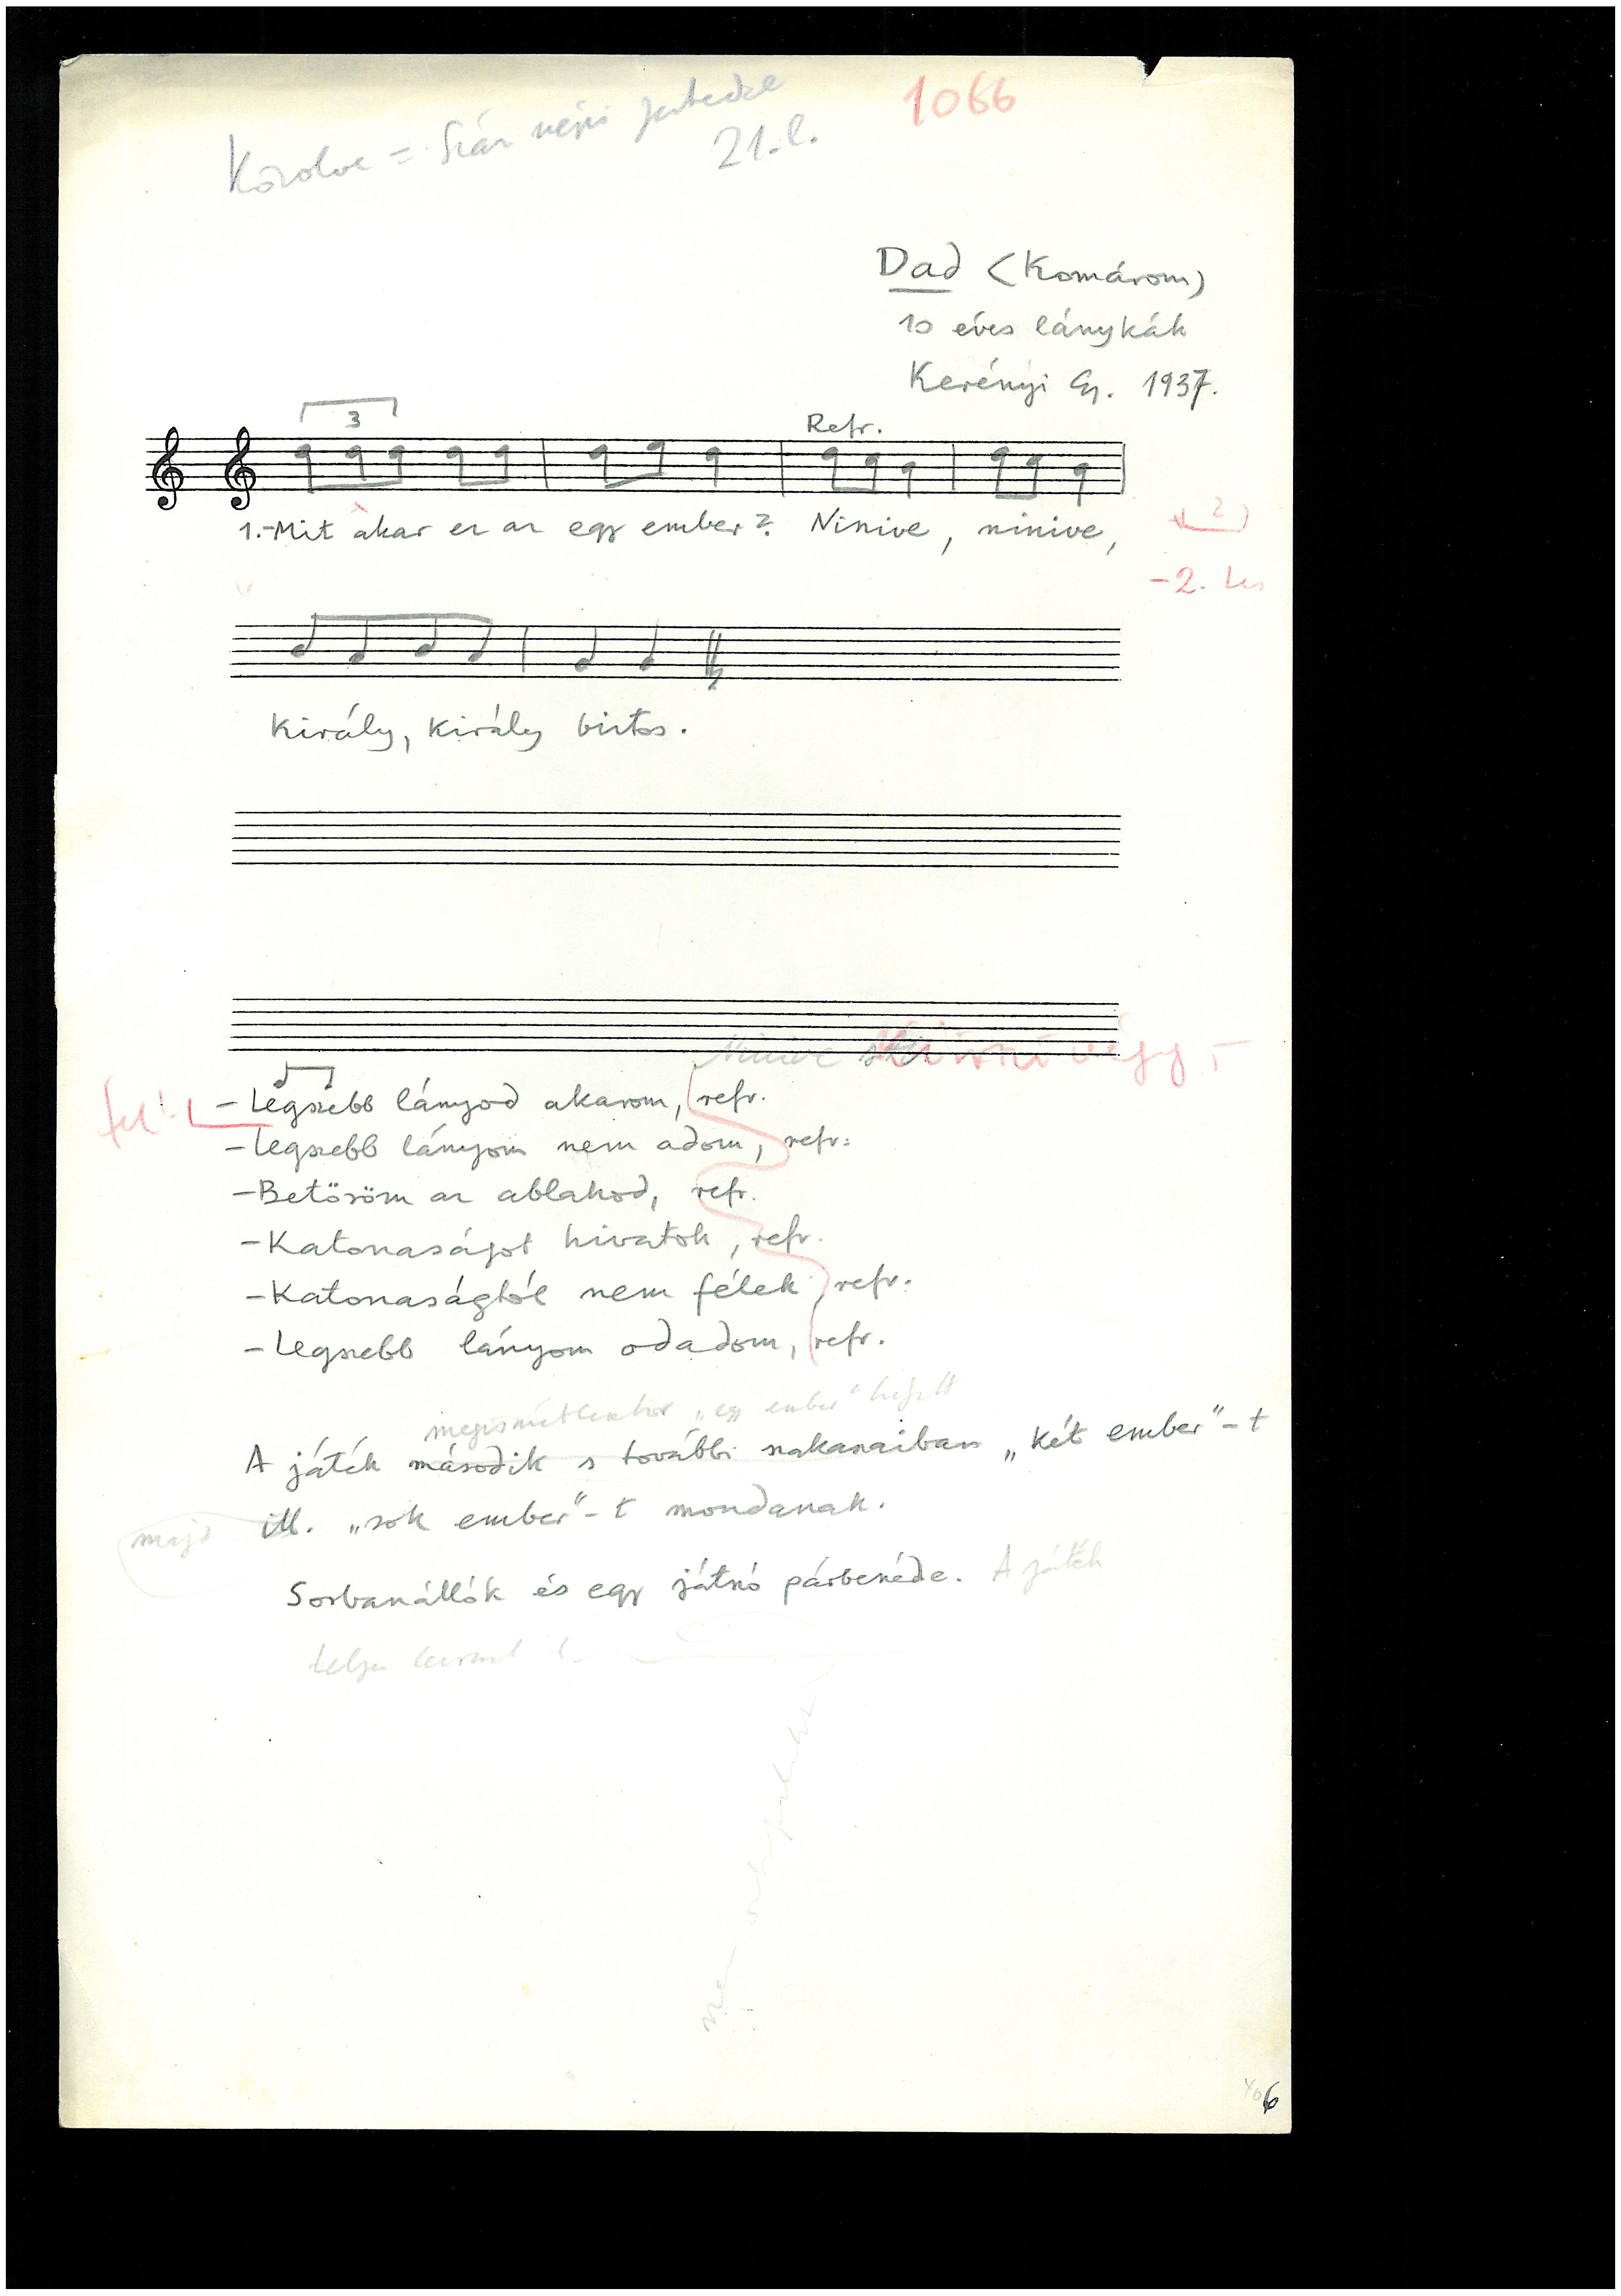 Közölve = Szár népi játékai
21. l.
1066
Dad (Komárom)
10 éves lánykák
Kerényi Gy. 1937.
3
Refr.
1.-Mit akar ez az egy ember? Ninive, ninive,
2
-2. ks
Király, király birtos.
Ninive stb
fel!
-Legszebb lányod akarom, refr.
-Legszebb lányom nem adom, refr.
-Betöröm az ablakod, refr.
-Katonaságot hivatok, refr.
-Katonaságtól nem félek, refr.
-Legszebb lányom odadom, refr.
megismétlésekor „egy ember" helyett
A játék második s további szakaszaiban „két ember"-t
majd ill. „sok ember"-t mondanak.
Sorbanállók és egy játszó párbeszéde. A játék
6